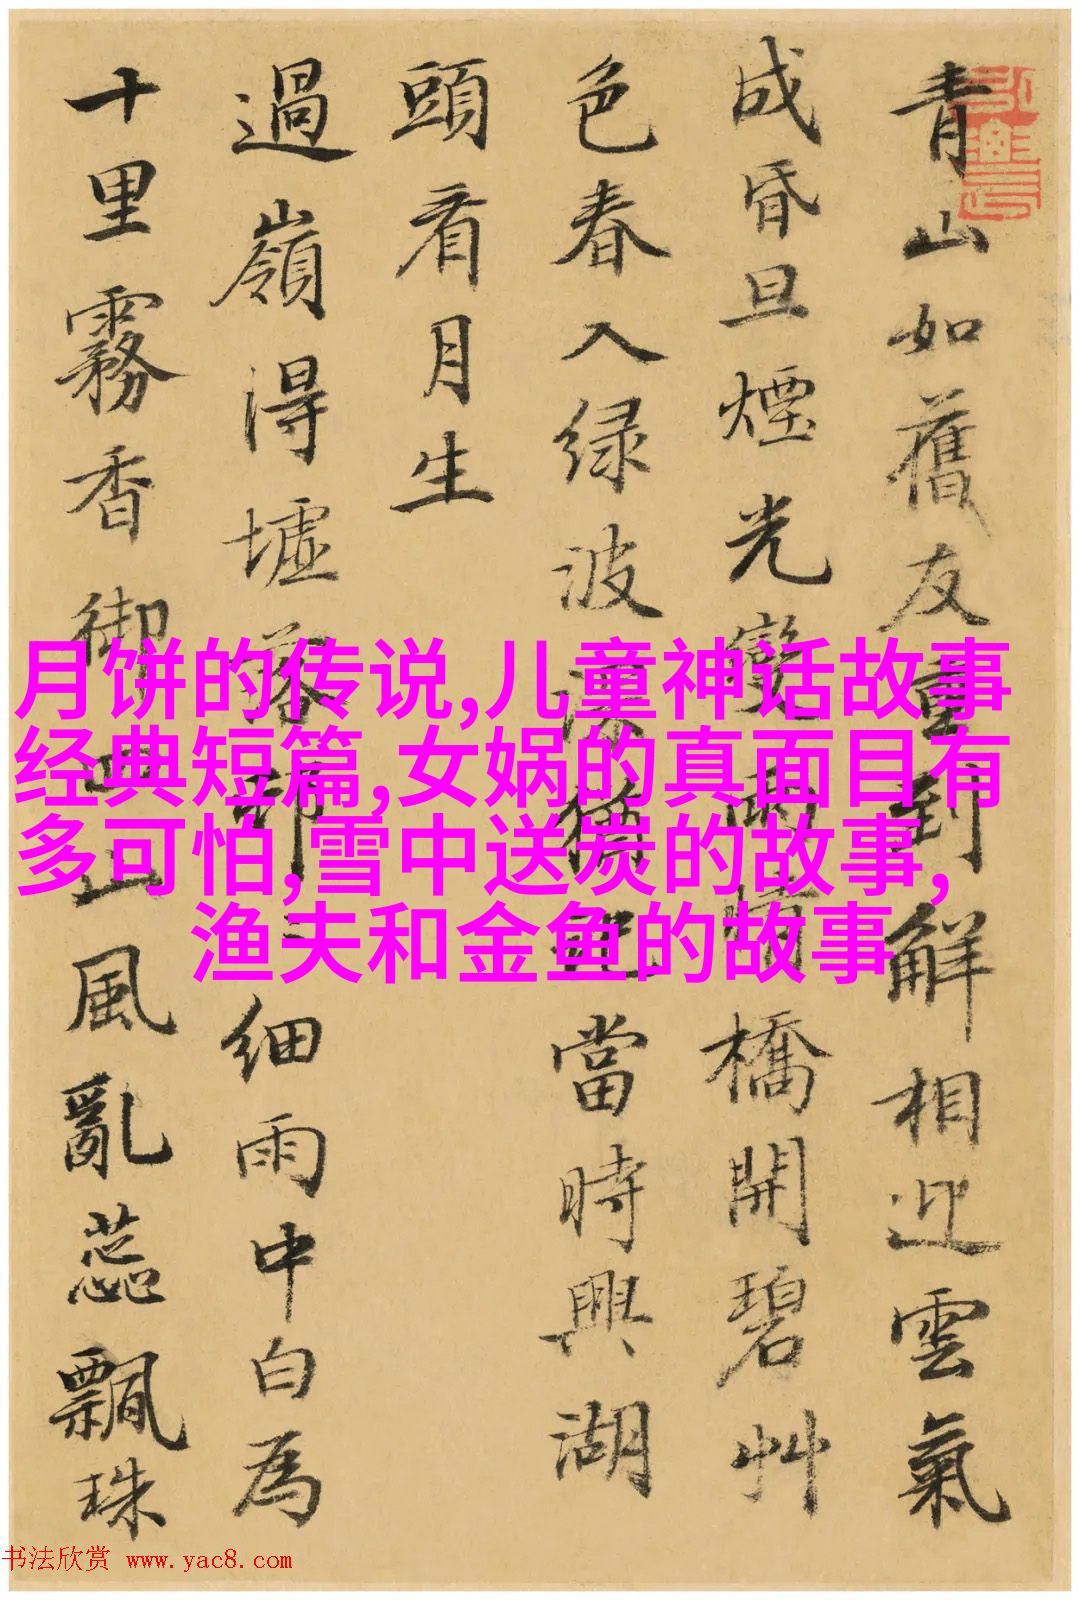 青山如舊友重到解相迎雲氣
成昏旦煙光變雨晴橋開碧艸
色春入绿波猶記當時興湖
頭看月生
過嶺得墟落細雨中白為
十里霧香御山風亂蕊飄珠
月饼的传说,儿童神话故事
经典短篇,女娲的真面目有
多可怕,雪中送炭的故事,
渔夫和金鱼的故事
书法欣赏 www.yac8.com